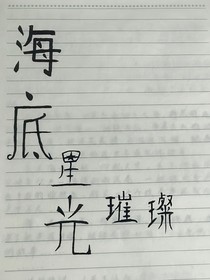 海底
星光
璀璨